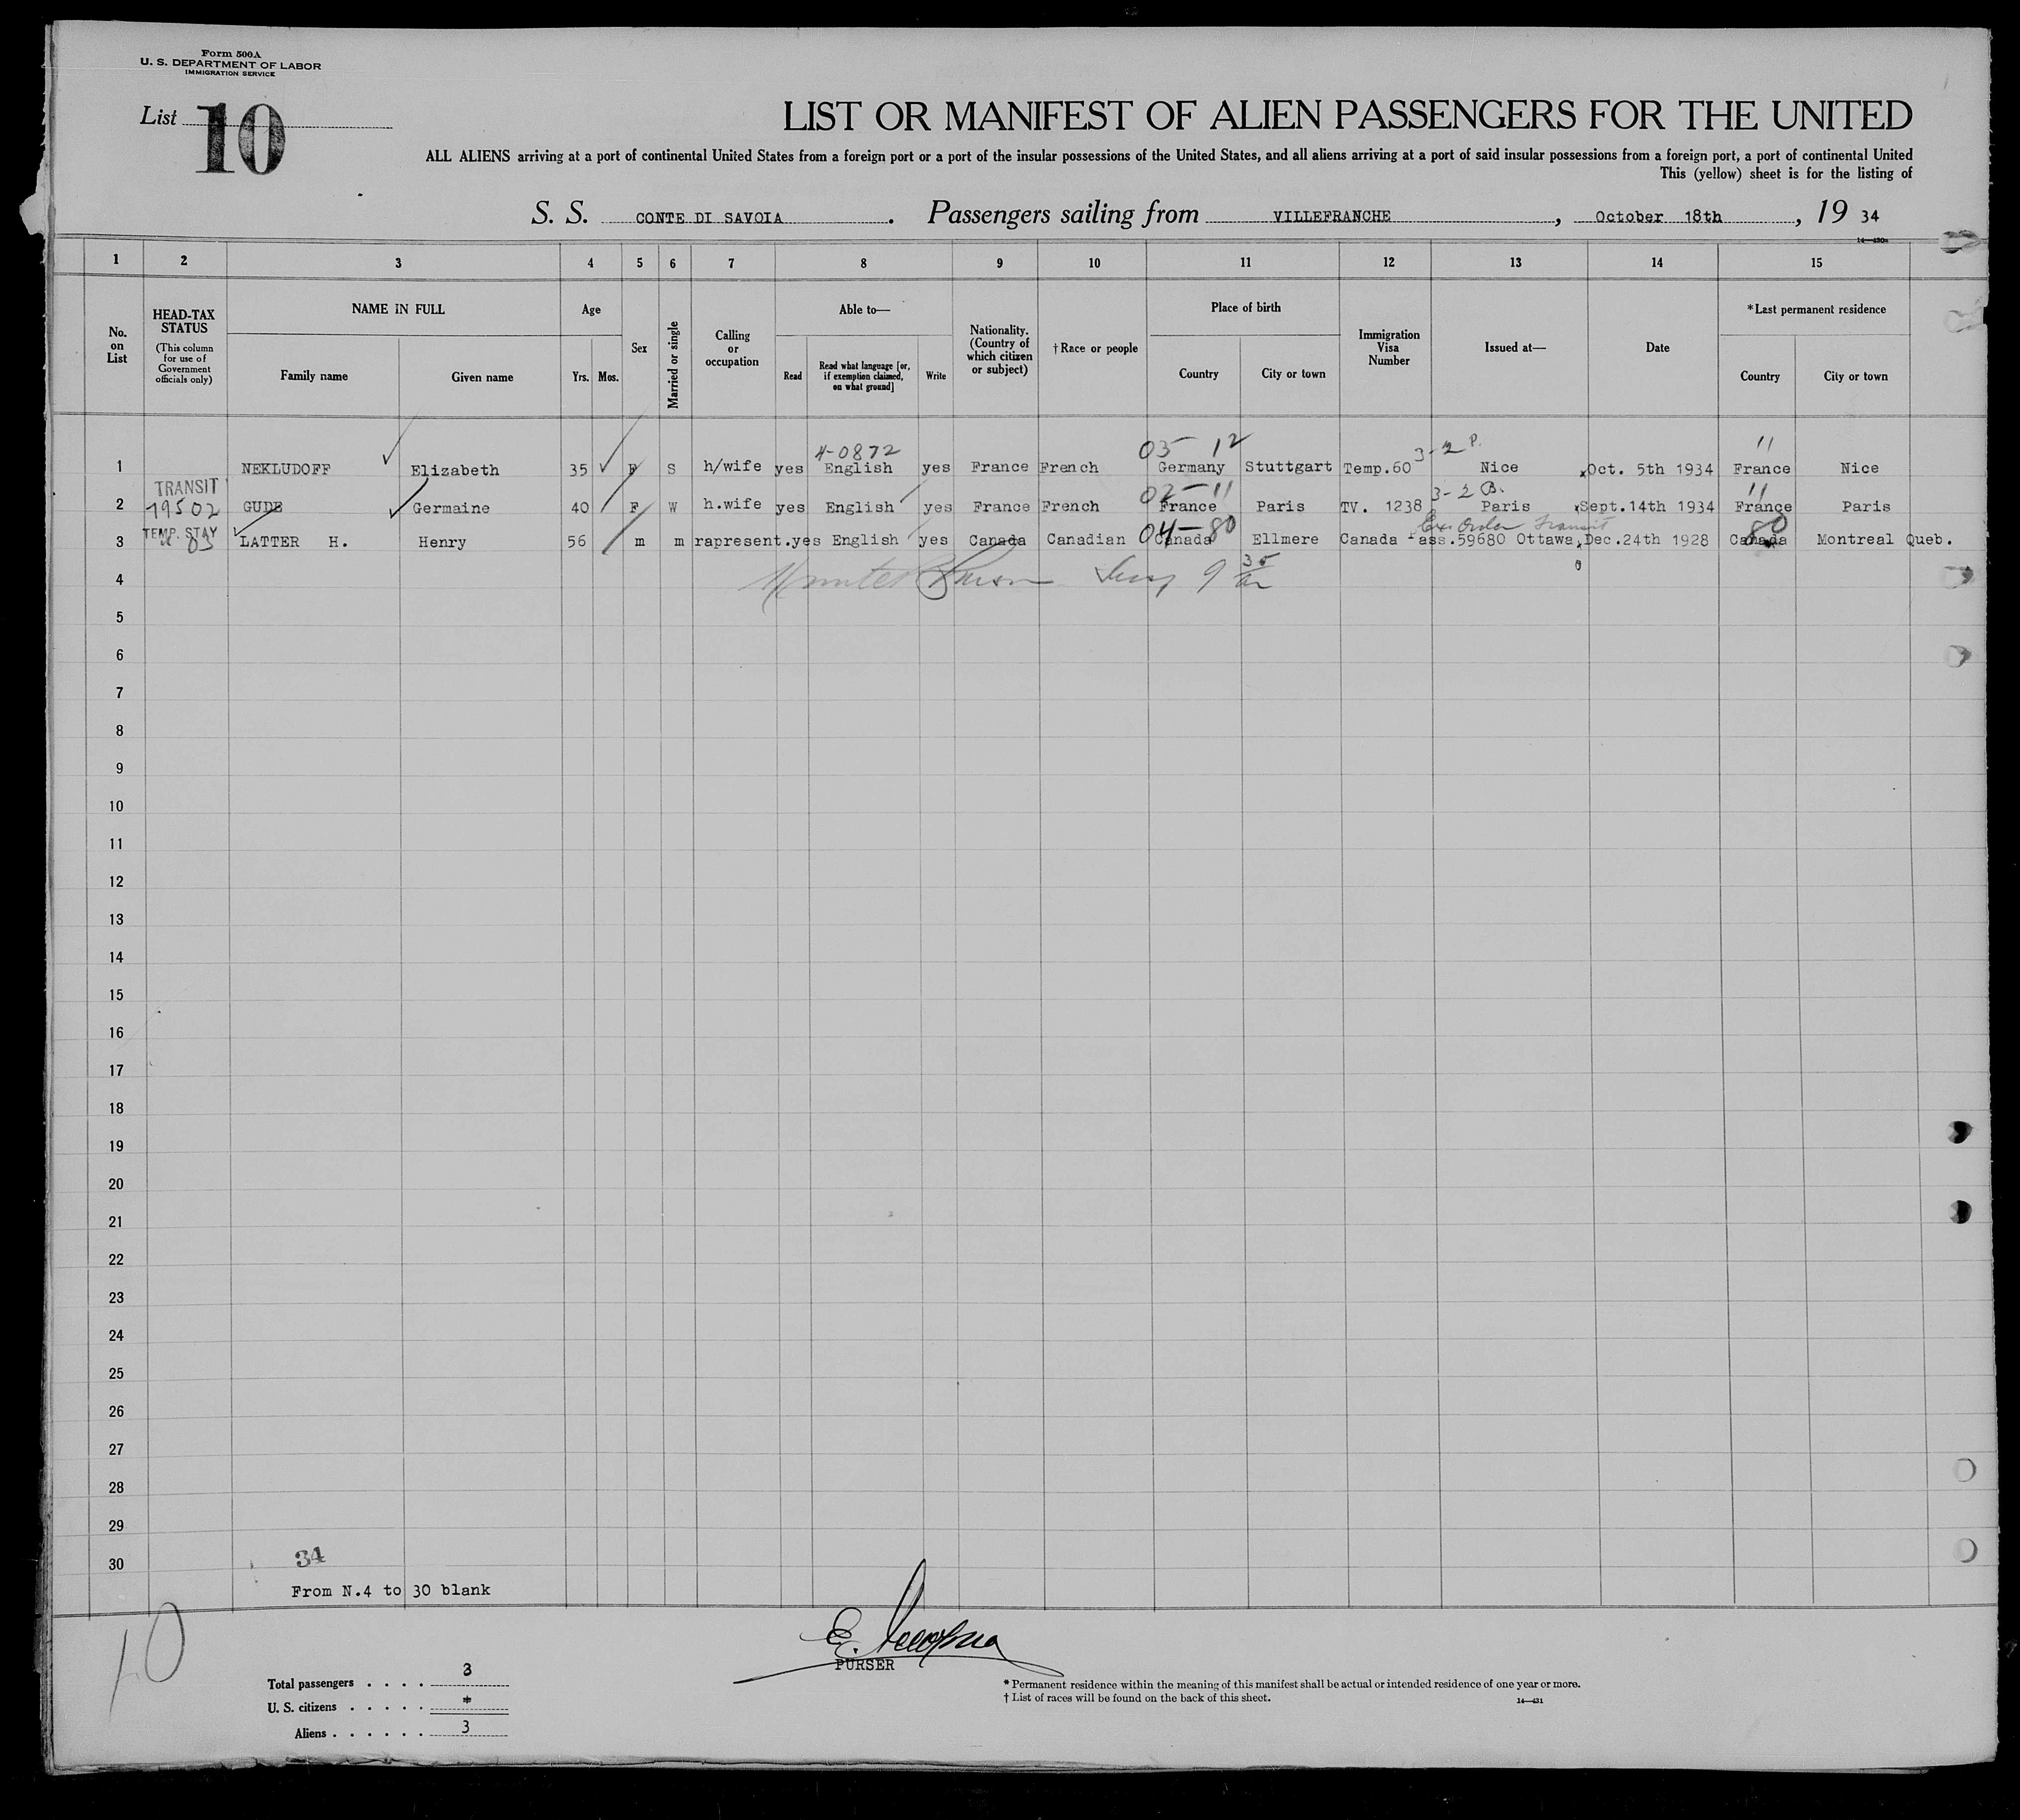 Form 500A
U. S. DEPARTMENT OF LABOR
IMMIGRATION SERVICE
List 10
LIST OR MANIFEST OF ALIEN PASSENGERS FOR THE UNITED
ALL ALIENS arriving at a port of continental United States from a foreign port or a port of the insular possessions of the United States, and all aliens arriving at a port of said insular possessions from a foreign port, a port of continental United
This (yellow) sheet is for the listing of
S. S. CONTE DI SAVOIA. Passengers sailing from VILLEFRANCHE, October 18th, 19 34
1 2 3 4 5 6 7 8 9 10 11 12 13 14 15
No. on List
HEAD-TAX STATUS
(This column for use of Government officials only)
NAME IN FULL
Family name Given name
Age
Yrs. Mos.
Sex
Married or single
Calling or occupation
Able to—
Read
Read what language [or, if exemption claimed, on what ground]
Write
Nationality. (Country of which citizen or subject)
† Race or people
Place of birth
Country City or town
Immigration Visa Number
Issued at—
Date
*Last permanent residence
Country City or town
4-0872 05 12 3-2 P. 11
1 NEKLUDOFF Elizabeth 35 F S h/wife yes English yes France French Germany Stuttgart Temp.60 Nice Oct. 5th 1934 France Nice
TRANSIT 02-11 3-2 B. 11
2 19502 GUDE Germaine 40 F W h.wife yes English yes France French France Paris TV. 1238 Paris Sept.14th 1934 France Paris
TEMP. STAY 04-80 Ex. Order Transit 80
3 03 LATTER H. Henry 56 m m rapresent. yes English yes Canada Canadian Canada Ellmere Canada Pass.59680 Ottawa, Dec.24th 1928 Canada Montreal Queb.
9 35
4
5
6
7
8
9
10
11
12
13
14
15
16
17
18
19
20
21
22
23
24
25
26
27
28
29
30
34
From N.4 to 30 blank
10
E.
PURSER
Total passengers . . . . 3
U. S. citizens . . . . . *
Aliens . . . . . . 3
* Permanent residence within the meaning of this manifest shall be actual or intended residence of one year or more.
† List of races will be found on the back of this sheet.
14—431